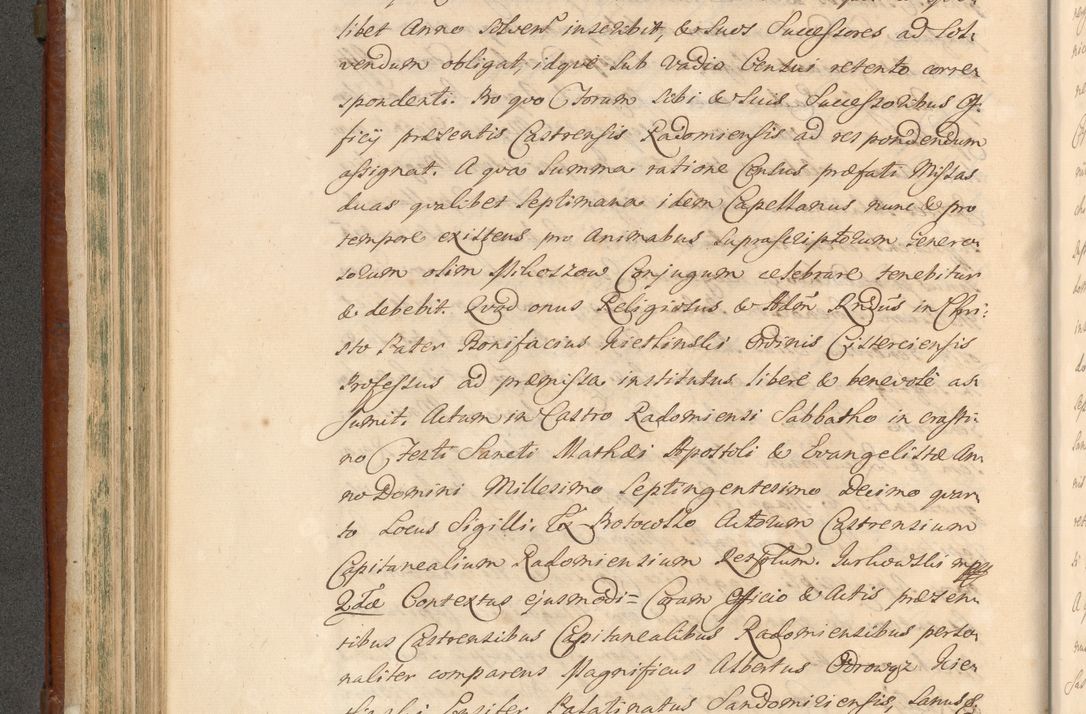 libet Anno solven̄ inscribit, & suos Successores ad sol-
vendum obligat, idque sub vadio Censui retento corre-
spondenti. Pro quo Forum sibi & suis Successoribus Of-
ficij præsentis Castrensis Radomiensis ad respondendum
assignat. A qva Summa ratione Census præfati Missas
duas qvalibet Septimana idem Capellanus nunc & pro
tempore existens pro Animabus Suprascriptorum Genero-
sorum olim Conjugum celebrare tenebitur
& debebit. Qvod onus Religiosus & Adm̄ Rn̄dus in Chri-
sto Pater Bonifacius Ordinis Cisterciensis
Professus ad præmissa institutus liberè & benevolè as-
sumit. Actum in Castro Radomiensi Sabbatho in crasti-
no Festi Sancti Mathæi Apostoli & Evangelistæ An-
no Domini Millesimo Septingentesimo Decimo qvar-
to Locus Sigilli. Ex Protocollo Actorum Castrensium
Capitanealium Radomiensium Rescptum. Jurkowski mpp
2dæ Contextus ejusmodi = Coram Officio & Actis præsen-
tibus Castrensibus Capitanealibus Radomiensibus perso-
naliter comparens Magnificus Albertus Odrowąz
Palatinatus Sandomiriensis, Sanus